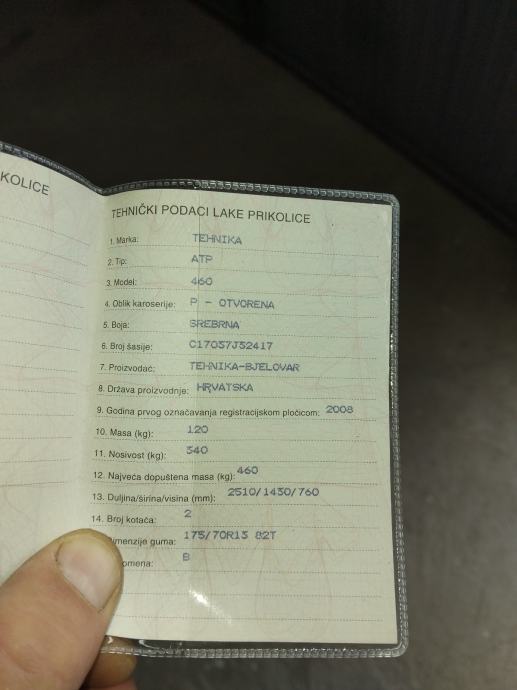 KOLICE
TEHNIČKI PODACI LAKE PRIKOLICE
1. Marka: TEHNIKA
2. Tip: ATP
3. Model: 460
4. Oblik karoserije: P - OTVORENA
5. Boja: SREBRNA
6. Broj šasije: C17057J52417
7. Proizvođač: TEHNIKA-BJELOVAR
8. Država proizvodnje: HRVATSKA
9. Godina prvog označavanja registracijskom pločicom: 2008
10. Masa (kg): 120
11. Nosivost (kg): 340
12. Najveća dopuštena masa (kg): 460
13. Duljina/širina/visina (mm): 2510/1430/760
14. Broj kotača: 2
imenzije guma: 175/70R13 82T
omena: B